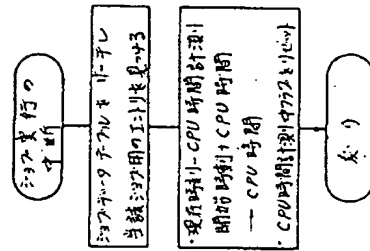 ジョブ実行の
中断
ジョブデータテーブルをリードし
当該ジョブ用のエントリを見つける
・現在時刻−CPU時間計測
開始時刻+CPU時間
→CPU時間
・CPU時間計測中フラグをリセット
戻り